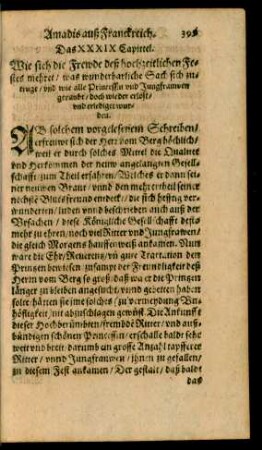 Amadis auß Franckreich. 395
Das XXXIX Capittel.
Wie sich die Frewde deß hochzeitlichen Fe-
stes mehret / was wunderbarliche Sach sich zu-
truge / vnd wie alle Princessin vnd Jungfrawen
geraubt / doch wieder erlößt /
vnd erlediget wur-
den.
AVß solchem vorgelesenem Schreiben /
erfrewet sich der Herr vom Berg höchlich /
weil er durch solches Mittel die Qualitet
vnd Herkommen der newn angelangten Gesell-
schafft zum Theil erfahren / Welches er dann sei-
ner newen Braut / vnnd den mehrertheil seiner
nechste Blutsfreund entdeckt / die sich hefftig ver-
wunderten / luden vnnd beschrieben auch auß der
Vrsachen / diese Königliche Gesellschafft desto
mehr zu ehren / noch viel Ritter vnd Jungfrawen /
die gleich Morgens hauffenweiß ankamen. Nun
ware die Ehr / Reuerentz / vñ gute Tractation den
Printzen bewiesen / zusampt der Freundligkeit deß
Herrn vom Berg so groß / daß wa er die Printzen
länger zu bleiben angesucht / vnnd gebetten haben
solte / hätten sie jme solches / zu vermeydung Vn-
höfligkeit / nit abzuschlagen gewüst. Die Ankunfft
dieser Hochberühmbten / frembde Ritter / vnd auß-
bündigen schönen Princessin / erschalle baldt sehr
weit vnd breit / darumb ein grosse Anzahl tapfferer
Ritter / vnnd Jungfrawen / ihnen zu gefallen /
zu diesem Fest ankamen / Der gestalt / daß baldt
das